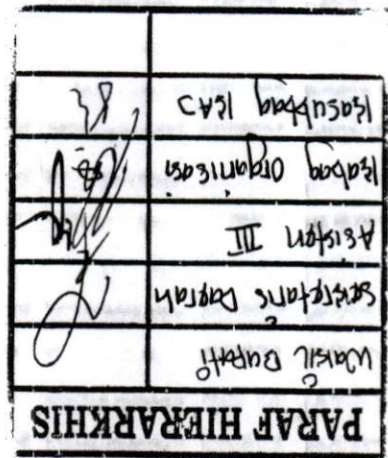 PARAF HIERARKHIS
Wakil Bupati
Sekretaris Daerah
Asisten III
Kabag Organisasi
Kasubbag